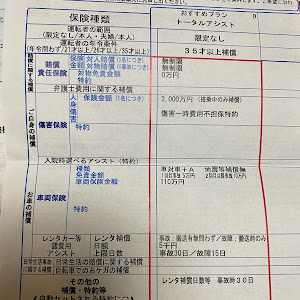 保険種類
おすすめプラン
トータルアシスト
運転者の範囲
(限定なし/本人・夫婦/本人)
限定なし
運転者の年令条件
(年令問わず/21才以上/26才以上/35才以上)
35才以上補償
賠償に関する補償
賠償
責任保険
保険 対人賠償 (1名につき)
金額 対物賠償 (1事故につき)
対物免責金額
特約
無制限
無制限
0万円
弁護士費用に関する補償
ご自身の補償
傷害保険
人身傷害
保険金額 (1名につき)
特約
3,000万円 (搭乗中のみ補償)
傷害一時費用不担保特約
入院時選べるアシスト (特約)
お車の補償
車両保険
種類
免責金額
車両保険金額
特約
車対車+A 地震等補償無
110万円
レンタカー等
諸費用
アシスト
レンタカー補償
日額
上限日数
事故・搬送有無問わず/故障:搬送時のみ
5千円
事故30日/故障15日
日常生活の賠償に関する補償
自転車でのおケガの補償
その他の
補償・特約等
レンタル補償日数等 事故時30日